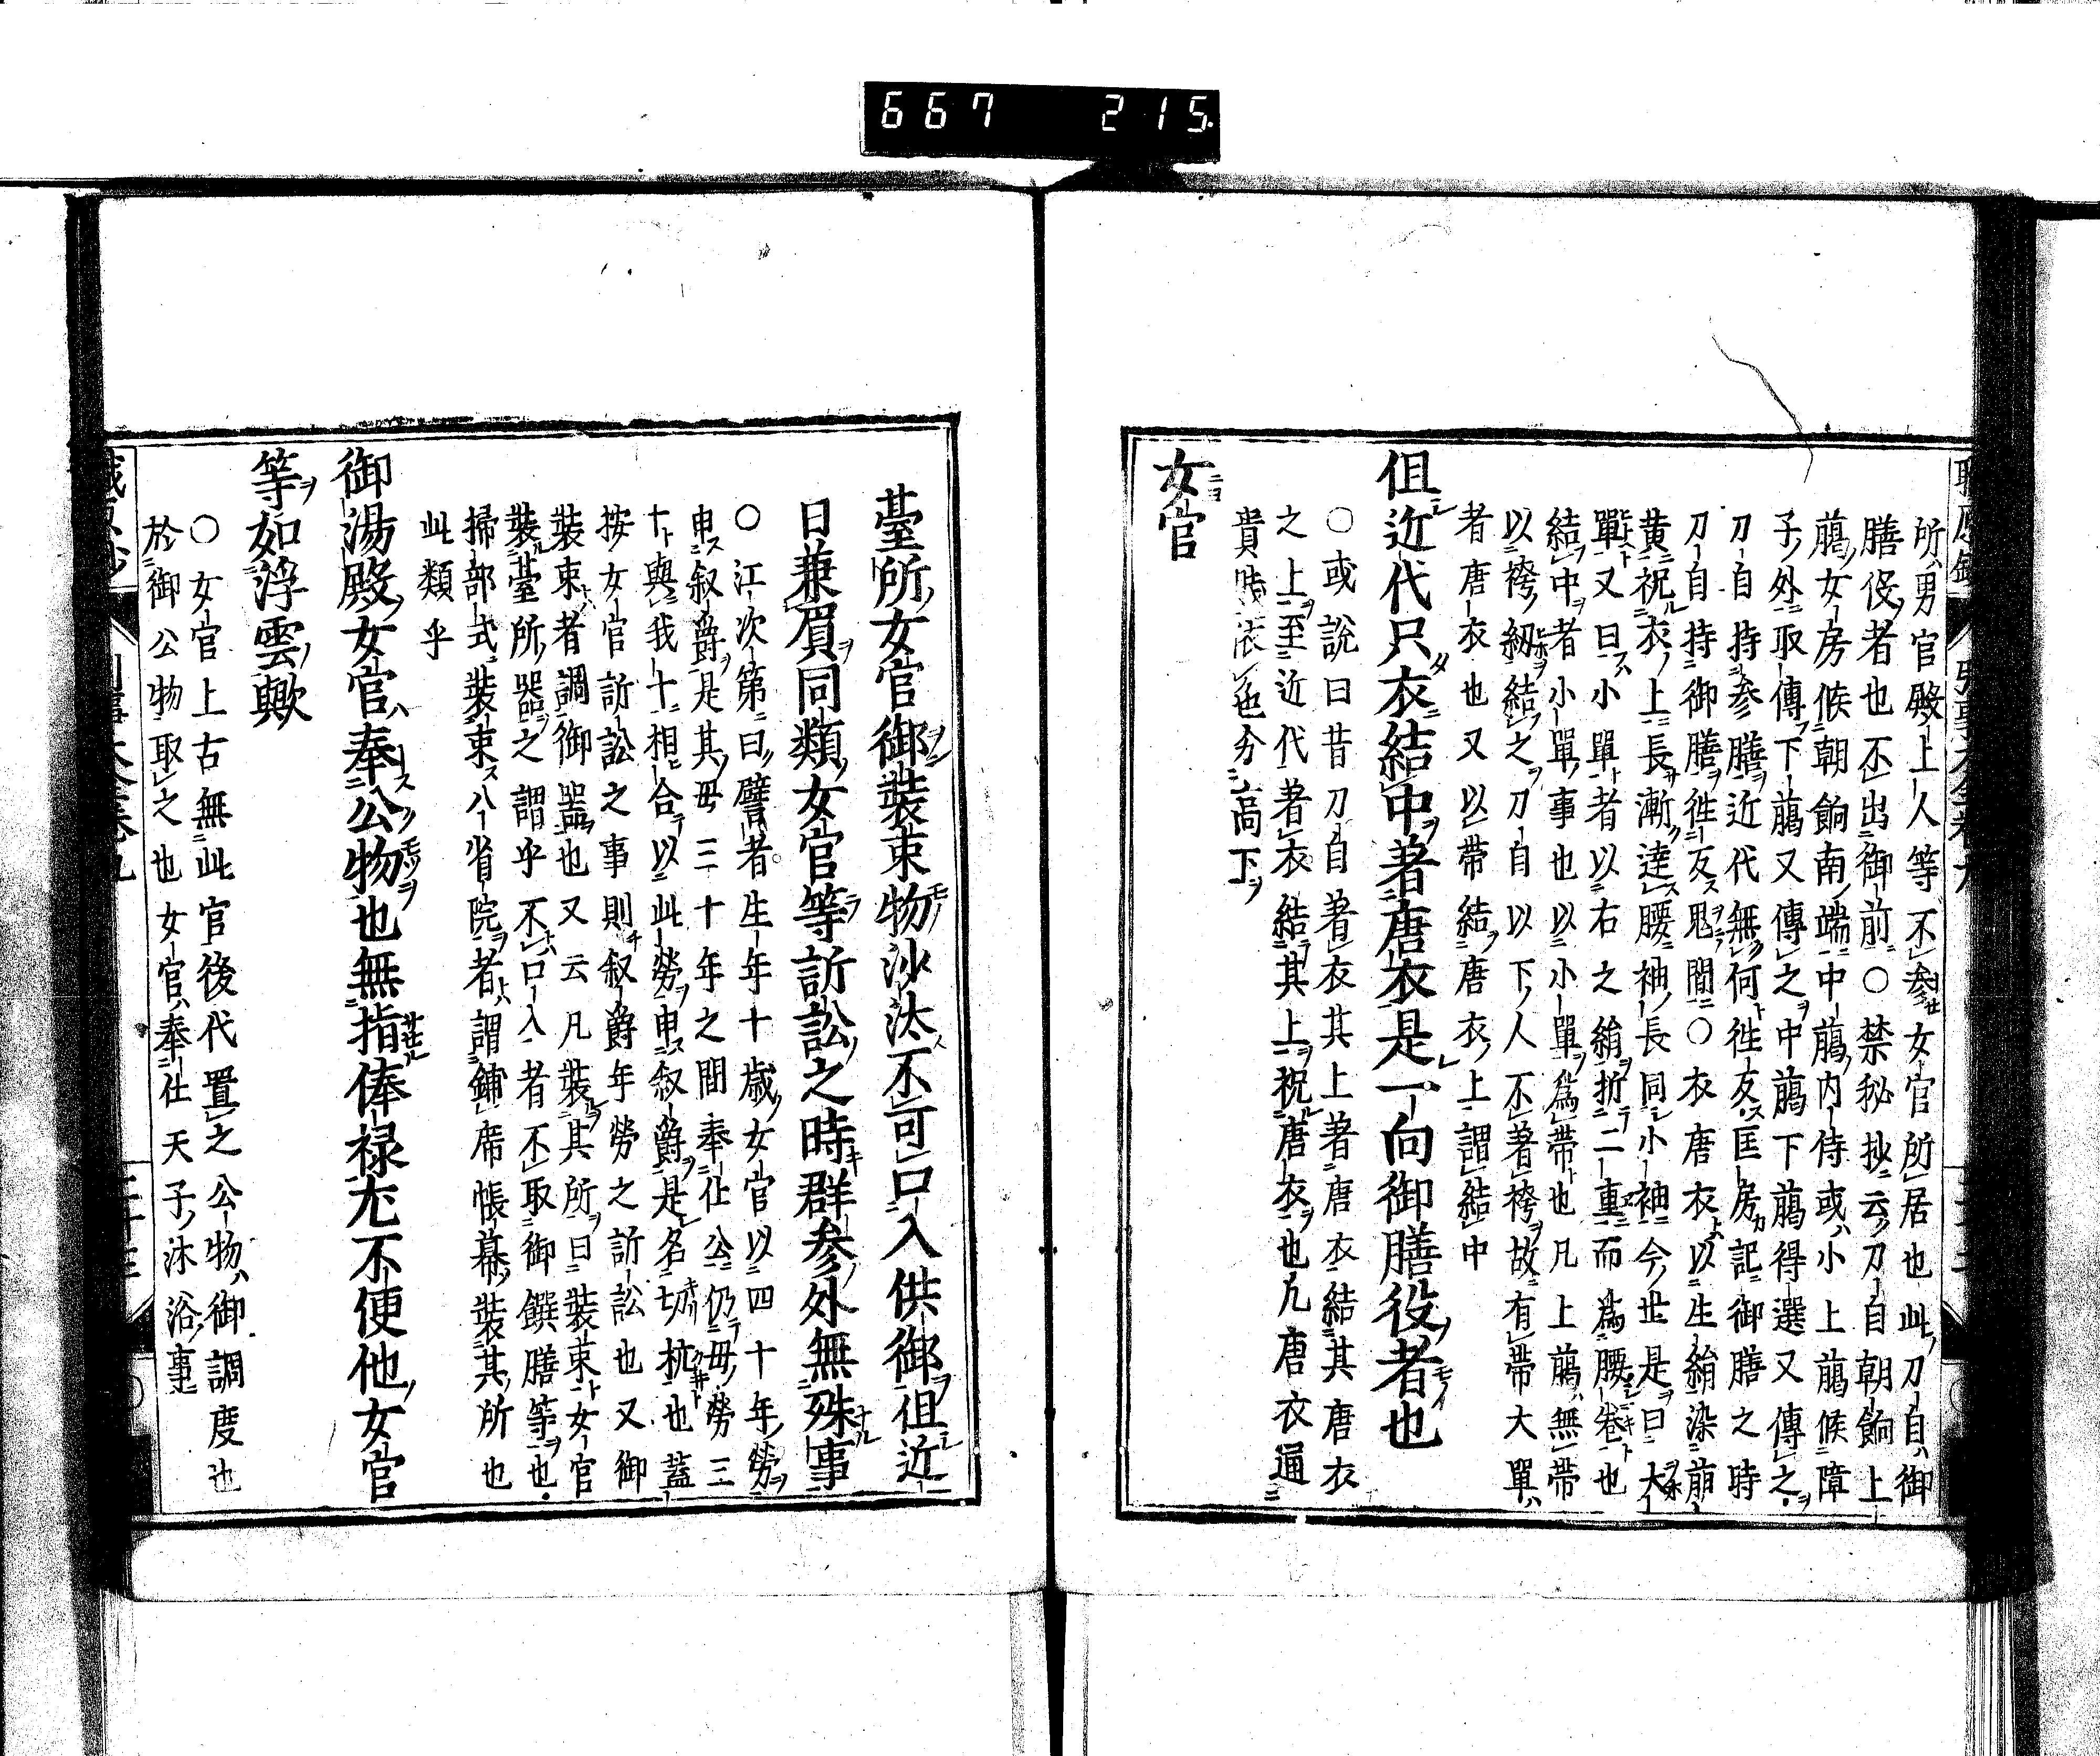 667 215
所男官殿上人等不参女官所居也此刀自御
膳役者也不出御前○禁秘抄云刀自朝餉上
﨟女房候朝餉南端中﨟内侍或小上﨟候障
子外取傳下﨟又傳之中﨟下﨟得選又傳之
刀自持参膳近代無何往友匡房記御膳之時
刀自持御膳往反鬼間○衣唐衣以生絹染萠
黄祝衣上長漸逹腰袖長同小袖今世是曰大
戰又曰小單者以右之絹折二重而為腰卷也
結中者小單事也以小單為帶也凡上﨟無帶
以袴紉結之刀自以下人不著袴故有帶大單
者唐衣也又以帶結唐衣上謂結中
但近代只衣結中著唐衣是一向御膳役者也
○或說曰昔刀自著衣其上著唐衣結其唐衣
之上至近代著衣結其上祝唐衣也凡唐衣通
貴賤法也分高下
女官
臺所女官御裝束物沙汰不可口入供御但近
日兼眉同類女官等訴訟之時群参外無殊事
○江次第曰譬者生年十歳女官以四十年勞
申叙爵是其毋三十年之間奉仕公仍毋勞三
十與我十相合以此勞申叙爵是名切杭也蓋
按女官訴訟之事則叙爵年勞之訴訟也又御
裝束者調御噐也又云凡裝其所曰裝束女官
裝臺所噐之謂乎不口入者不取御饌膳等也
掃部式裝束八省院者謂鋪席帳幕裝其所也
此類乎
御湯殿女官奉公物也無指俸禄尤不便他女官
等如浮雲歟
○女官上古無此官後代置之公物御調度也
於御公物取之也女官奉仕天子沐浴事